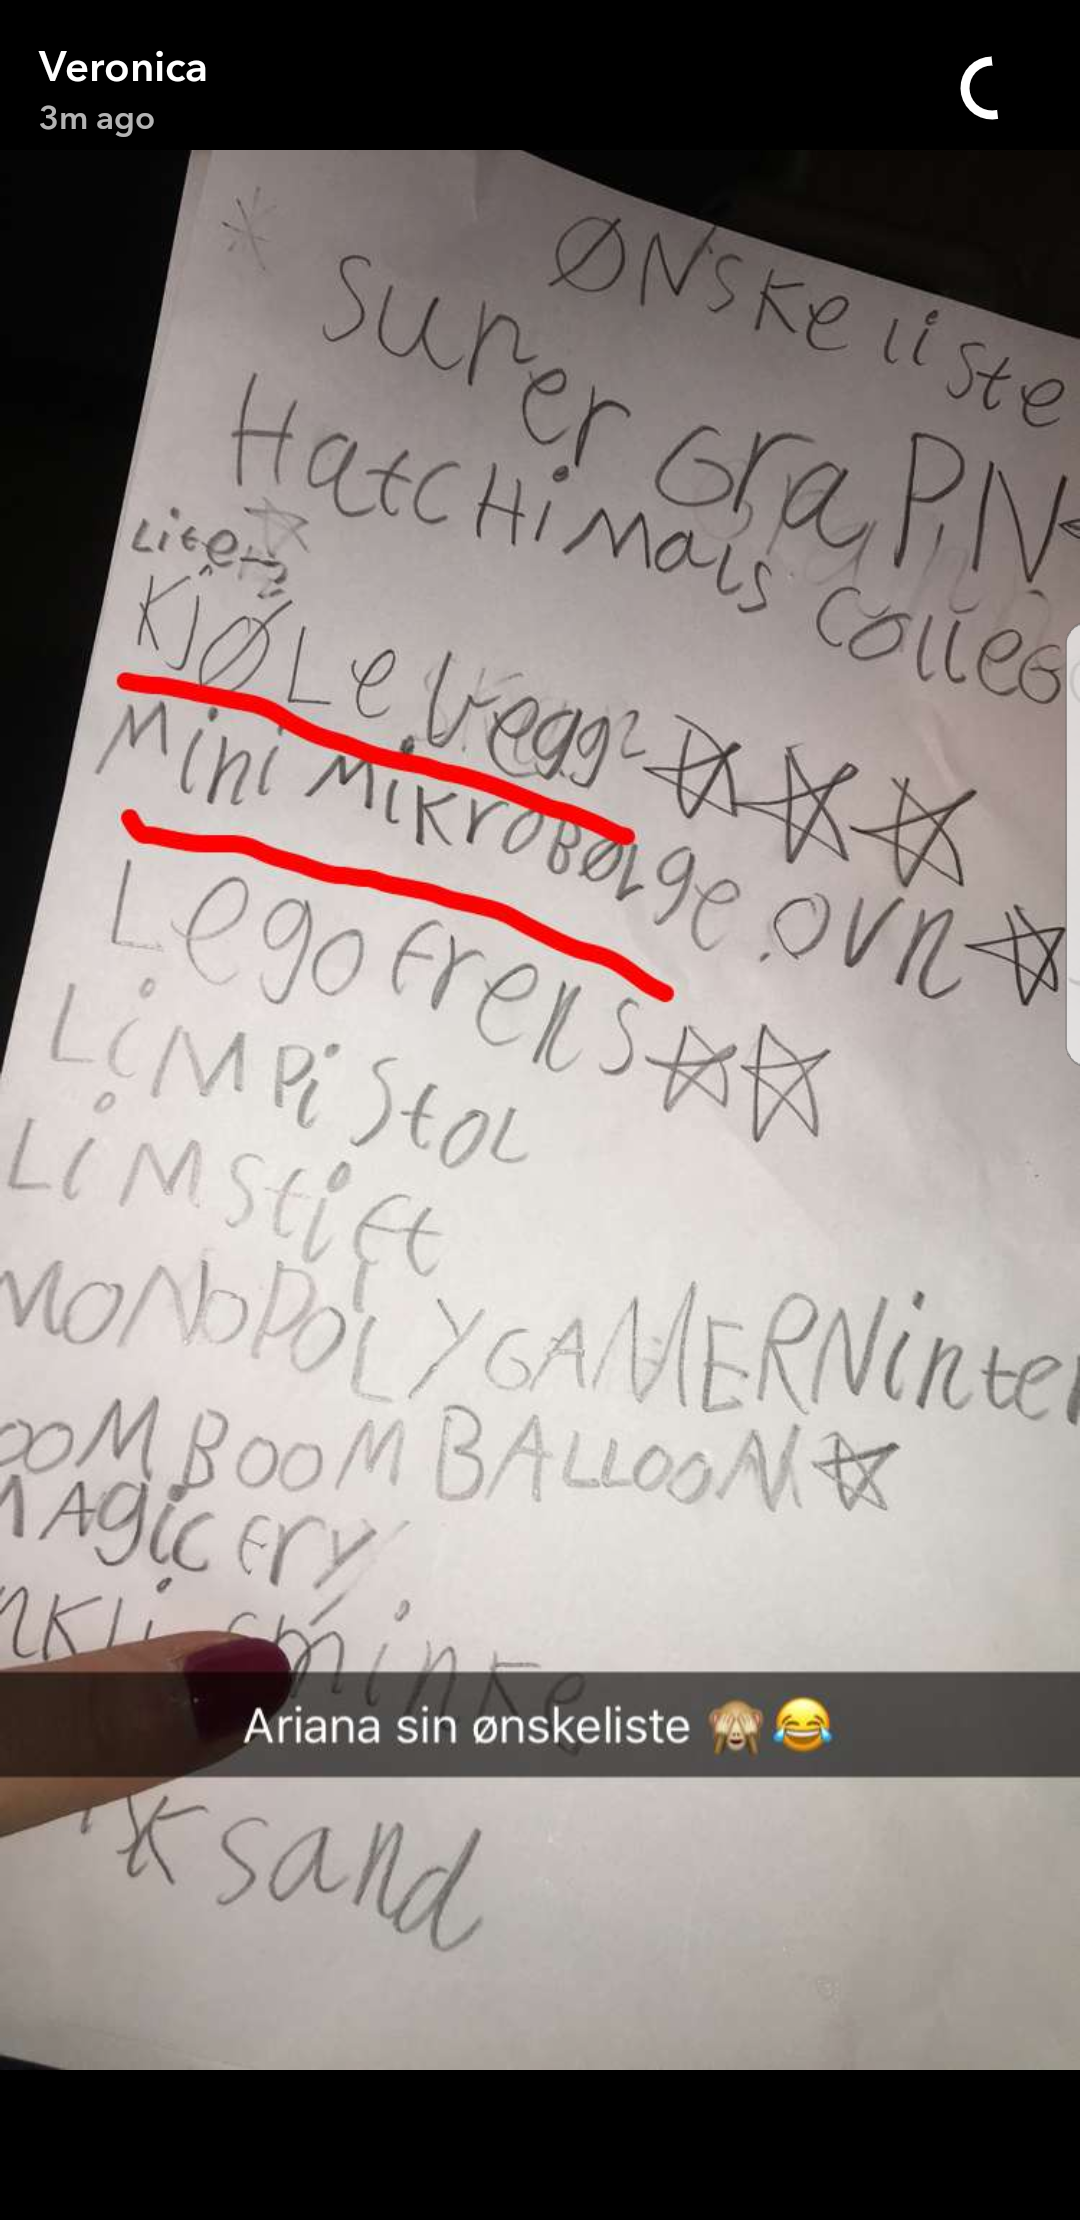 Veronica
3m ago
ØNSKeliste
Super Gra PIN
HatCHiMals colleg
Liten
KJØLevegg
Mini MikroBølge ovn
Lego frens
LiMPiStoL
LiMStift
MONOPOLYGAMERNinten
OOMBOOMBALLOON
MAgic Ery
nkli sminke
Ariana sin ønskeliste 🙈😂
sand